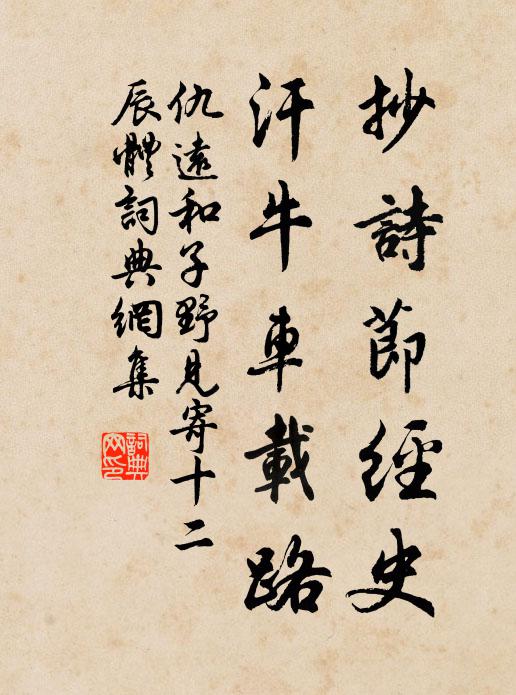 抄詩節經史
汗牛車載路
仇遠和子野見寄十二
辰體詞典網集
詞典
网印